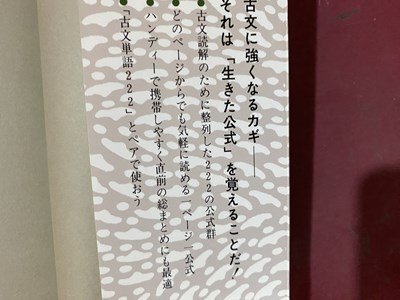 古文に強くなるカギ――
それは「生きた公式」を覚えることだ！
●古文読解のために整列した222の公式群
●どのページからでも気軽に読める一ページ一公式
●ハンディーで携帯しやすく直前の総まとめにも最適
●「古文単語222」とペアで使おう